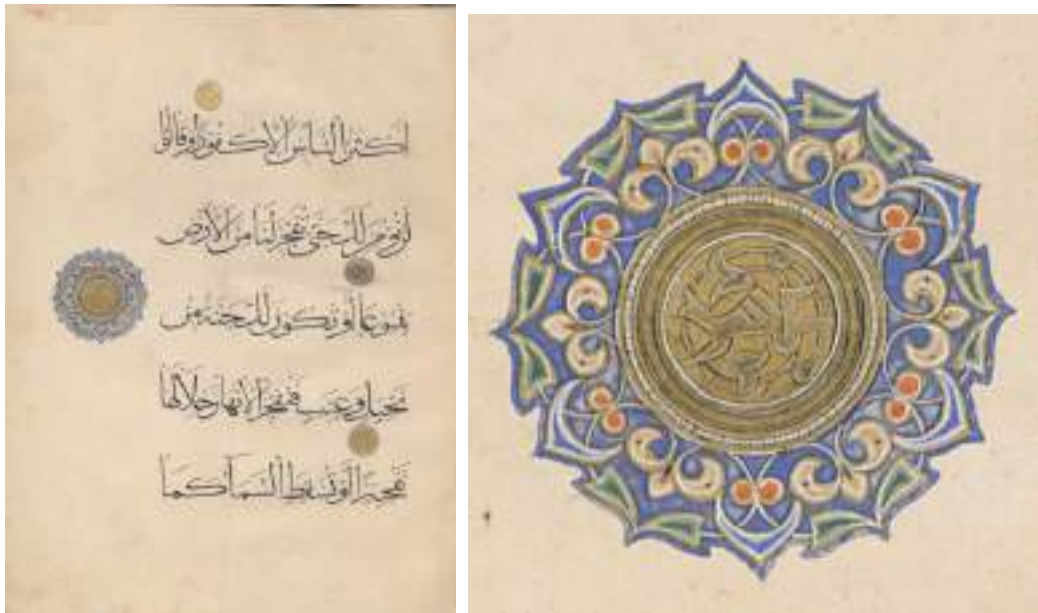 أكثر الناس إلا كفورا وقالوا
لن نؤمن لك حتى تفجر لنا من الأرض
ينبوعا أو تكون لك جنة من
نخيل وعنب فتفجر الأنهار خلالها
تفجيرا أو تسقط السماء كما